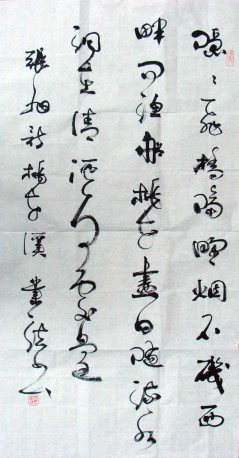 隱〻飛橋隔野烟石磯西
畔问漁船桃花盡日隨流水
洞在清溪何處邊
張旭詩桃花溪